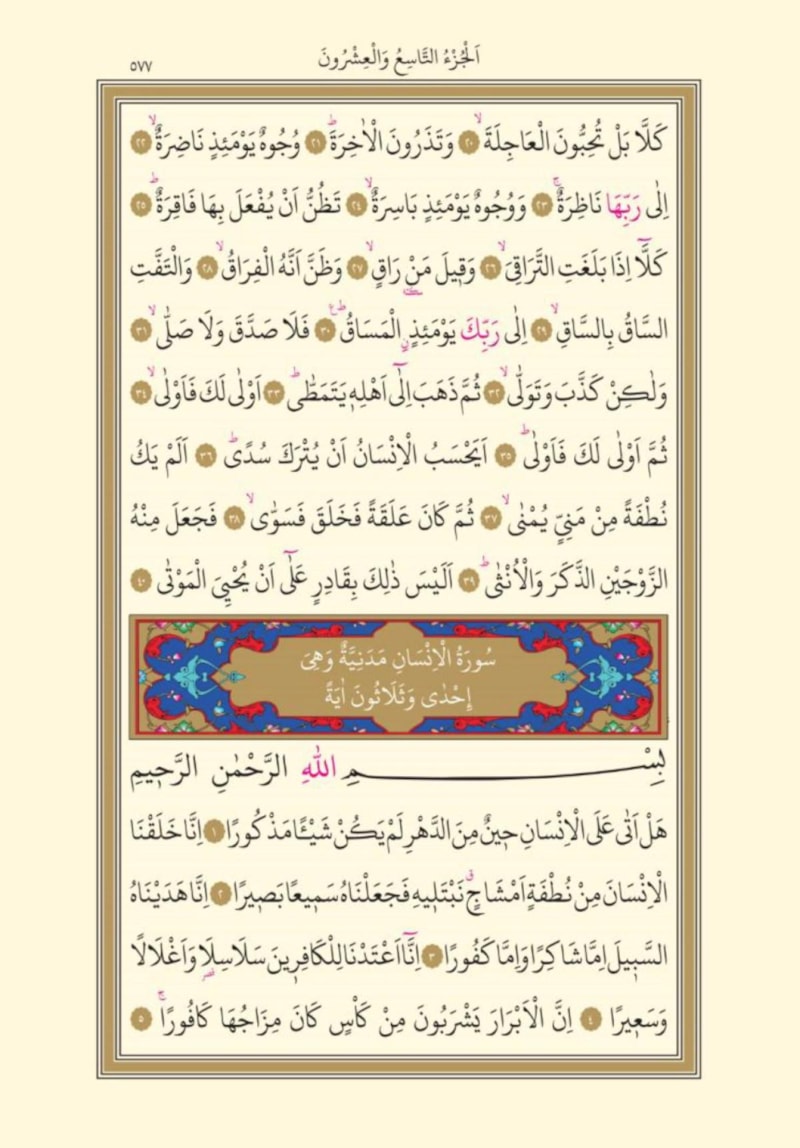 اَلْجُزْءُ التَّاسِعُ وَالْعِشْرُونَ
٥٧٧
كَلَّا بَلْ تُحِبُّونَ الْعَاجِلَةَۙ ﴿٢٠﴾ وَتَذَرُونَ الْاٰخِرَةَۜ ﴿٢١﴾ وُجُوهٌ يَوْمَئِذٍ نَاضِرَةٌۙ ﴿٢٢﴾
اِلٰى رَبِّهَا نَاظِرَةٌۚ ﴿٢٣﴾ وَوُجُوهٌ يَوْمَئِذٍ بَاسِرَةٌۙ ﴿٢٤﴾ تَظُنُّ اَنْ يُفْعَلَ بِهَا فَاقِرَةٌۜ ﴿٢٥﴾
كَلَّٓا اِذَا بَلَغَتِ التَّرَاقِيَۙ ﴿٢٦﴾ وَق۪يلَ مَنْ رَاقٍۙ ﴿٢٧﴾ وَظَنَّ اَنَّهُ الْفِرَاقُۙ ﴿٢٨﴾ وَالْتَفَّتِ
السَّاقُ بِالسَّاقِۙ ﴿٢٩﴾ اِلٰى رَبِّكَ يَوْمَئِذٍۨ الْمَسَاقُۜ۟ ﴿٣٠﴾ فَلَا صَدَّقَ وَلَا صَلّٰىۙ ﴿٣١﴾
وَلٰكِنْ كَذَّبَ وَتَوَلّٰىۙ ﴿٣٢﴾ ثُمَّ ذَهَبَ اِلٰٓى اَهْلِه۪ يَتَمَطّٰىۜ ﴿٣٣﴾ اَوْلٰى لَكَ فَاَوْلٰىۙ ﴿٣٤﴾
ثُمَّ اَوْلٰى لَكَ فَاَوْلٰىۜ ﴿٣٥﴾ اَيَحْسَبُ الْاِنْسَانُ اَنْ يُتْرَكَ سُدًىۜ ﴿٣٦﴾ اَلَمْ يَكُ
نُطْفَةً مِنْ مَنِيٍّ يُمْنٰىۙ ﴿٣٧﴾ ثُمَّ كَانَ عَلَقَةً فَخَلَقَ فَسَوّٰىۙ ﴿٣٨﴾ فَجَعَلَ مِنْهُ
الزَّوْجَيْنِ الذَّكَرَ وَالْاُنْثٰىۜ ﴿٣٩﴾ اَلَيْسَ ذٰلِكَ بِقَادِرٍ عَلٰٓى اَنْ يُحْيِيَ الْمَوْتٰى ﴿٤٠﴾
سُورَةُ الْاِنْسَانِ مَدَنِيَّةٌ وَهِيَ
اِحْدٰى وَثَلَاثُونَ اٰيَةً
بِسْمِ اللّٰهِ الرَّحْمٰنِ الرَّح۪يمِ
هَلْ اَتٰى عَلَى الْاِنْسَانِ ح۪ينٌ مِنَ الدَّهْرِ لَمْ يَكُنْ شَيْـًٔا مَذْكُورًا ﴿١﴾ اِنَّا خَلَقْنَا
الْاِنْسَانَ مِنْ نُطْفَةٍ اَمْشَاجٍۗ نَبْتَل۪يهِ فَجَعَلْنَاهُ سَم۪يعًا بَص۪يرًا ﴿٢﴾ اِنَّا هَدَيْنَاهُ
السَّب۪يلَ اِمَّا شَاكِرًا وَاِمَّا كَفُورًا ﴿٣﴾ اِنَّٓا اَعْتَدْنَا لِلْكَافِر۪ينَ سَلَاسِلَا۬ وَاَغْلَالًا
وَسَع۪يرًا ﴿٤﴾ اِنَّ الْاَبْرَارَ يَشْرَبُونَ مِنْ كَأْسٍ كَانَ مِزَاجُهَا كَافُورًاۚ ﴿٥﴾